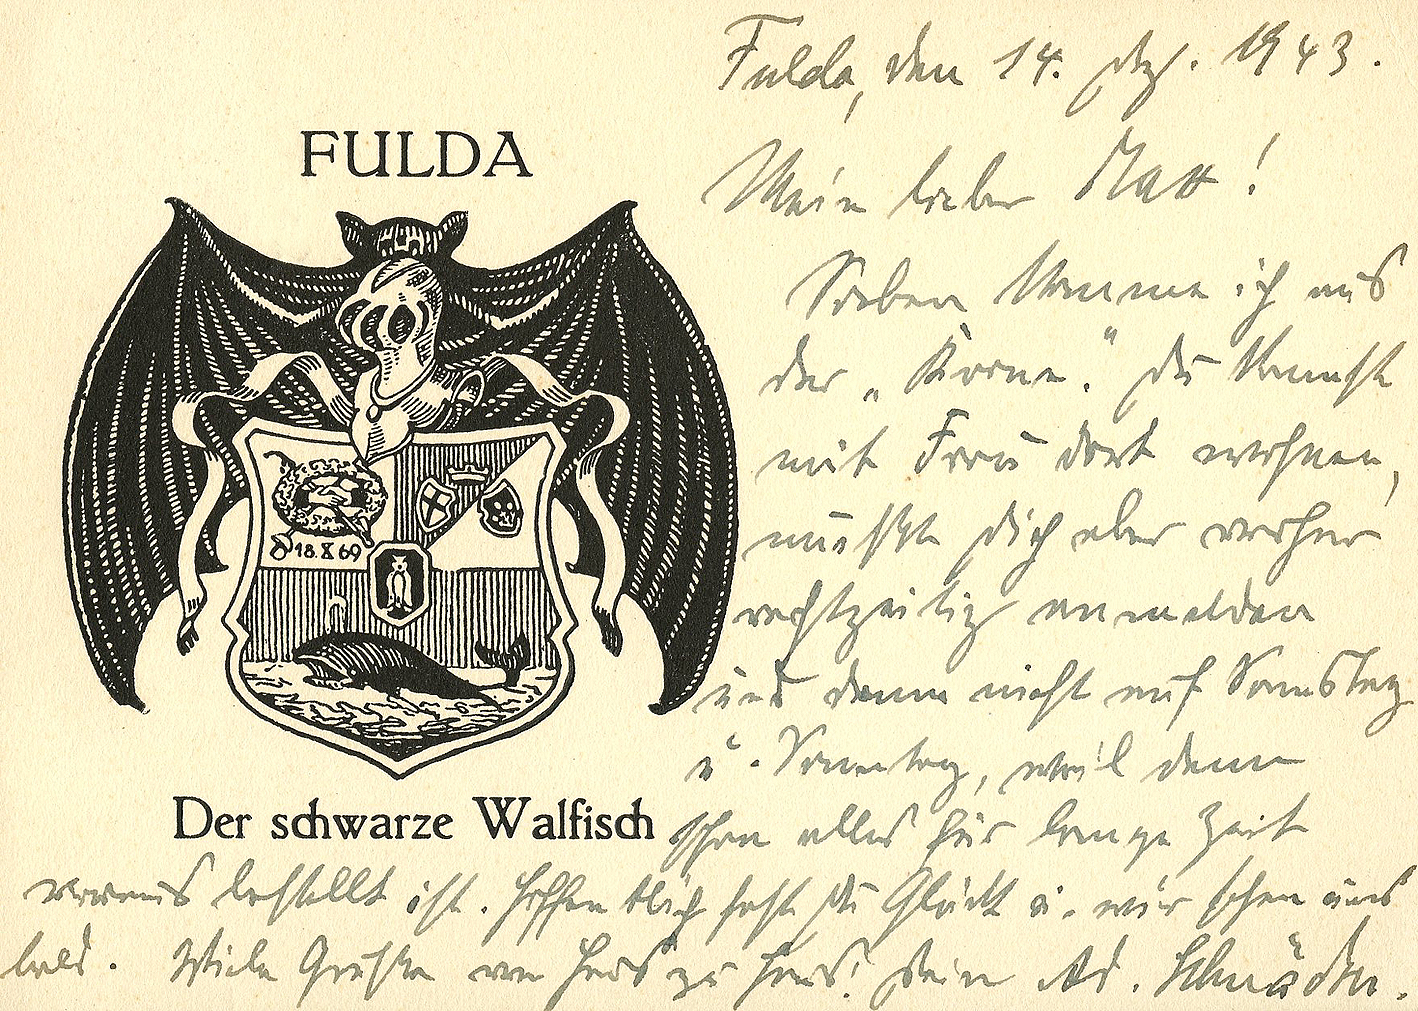 Fulda, den 14. Dez. 1943.
FULDA
Mein lieber Matt!
Soeben komme ich aus
der „Krone." Du kannst
mit Frau dort wohnen,
mußt Dich aber vorher
rechtzeitig anmelden
und dann nicht auf Samstag
u. Sonntag, weil dann
schon alles für lange Zeit
voraus bestellt ist. Hoffentlich hast Du Glück u. wir sehen uns
bald. Viele Grüße von Haus zu Haus! Dein Ad.
18.X.69
Der schwarze Walfisch